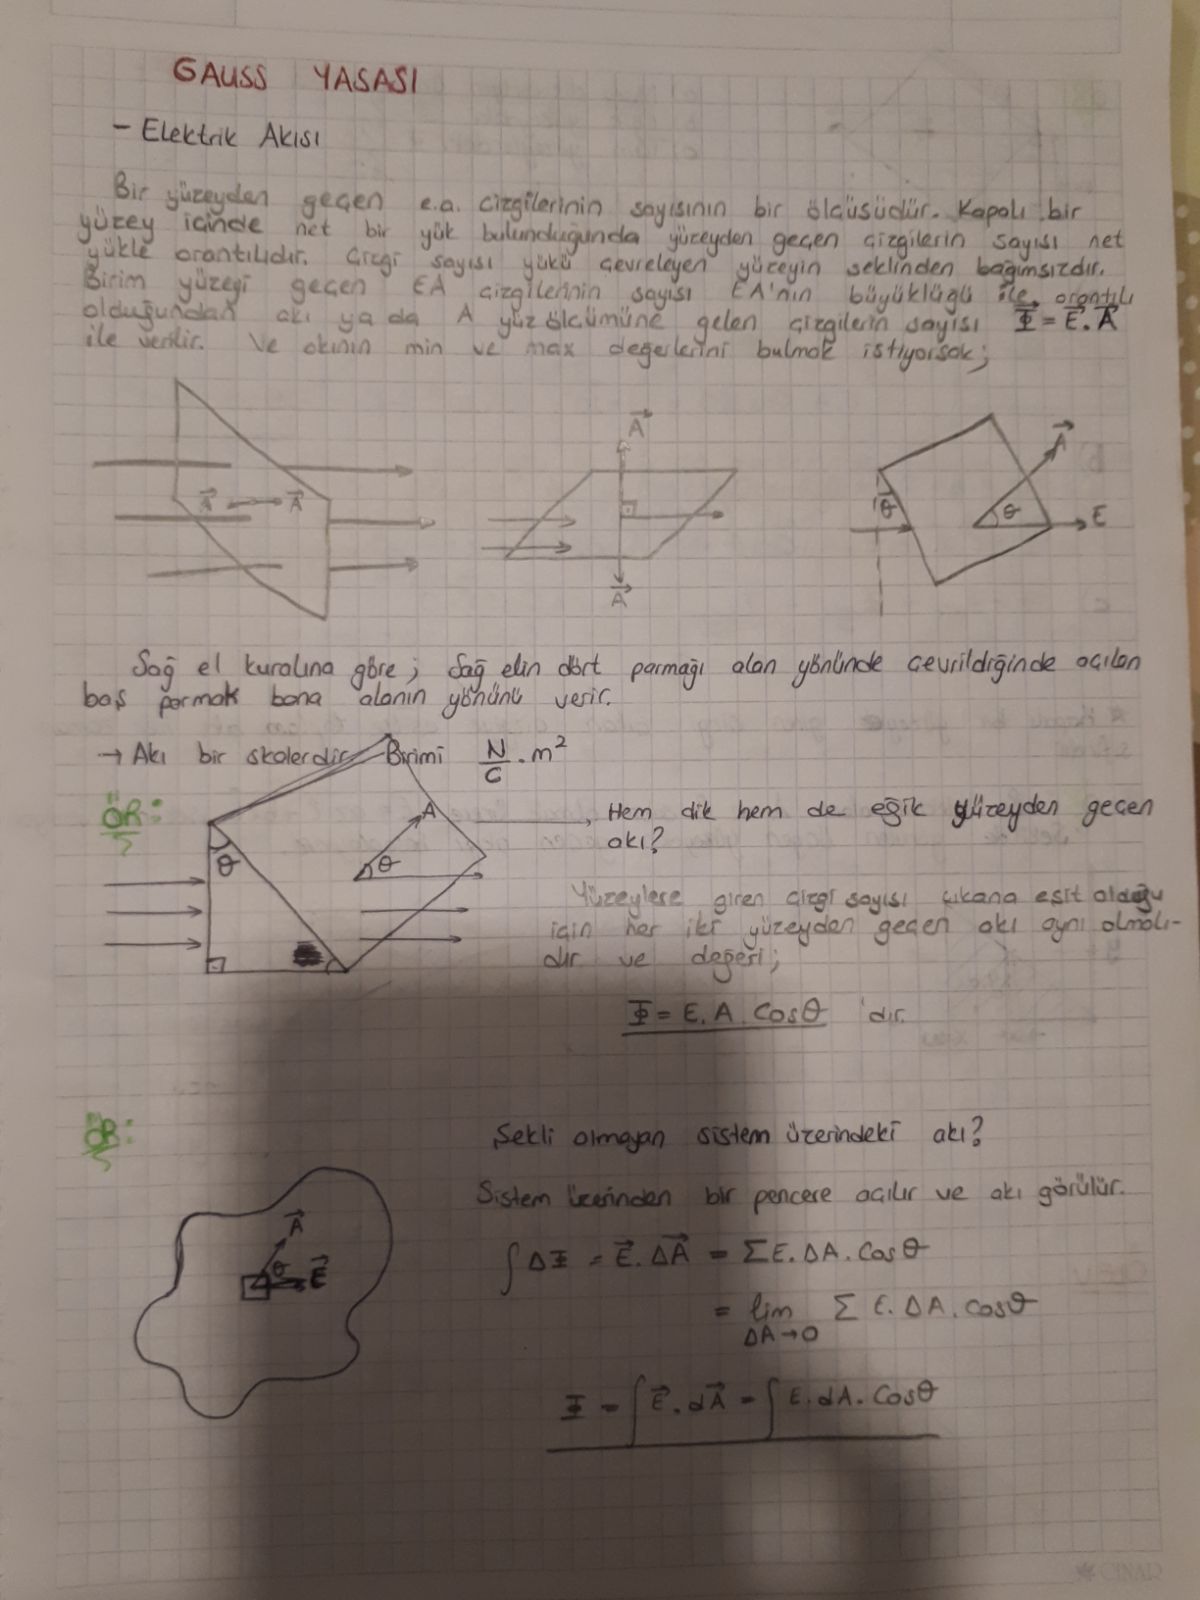 GAUSS YASASI
- Elektrik Akısı
Bir yüzeyden geçen e.a. çizgilerinin sayısının bir ölçüsüdür. Kapalı bir
yüzey içinde net bir yük bulunduğunda yüzeyden geçen çizgilerin sayısı net
yükle orantılıdır. Çizgi sayısı yükü çevreleyen yüzeyin şeklinden bağımsızdır.
Birim yüzeyi geçen EA çizgilerinin sayısı EA'nın büyüklüğü ile orantılı
olduğundan akı ya da A yüz ölçümüne gelen çizgilerin sayısı Φ⃗ = E⃗ . A⃗
ile verilir. Ve akının min ve max değerlerini bulmak istiyorsak;
A⃗ A⃗
A⃗
A⃗
A⃗
θ θ E
Sağ el kuralına göre; Sağ elin dört parmağı alan yönünde çevrildiğinde açılan
baş parmak bana alanın yönünü verir.
→ Akı bir skalerdir. Birimi N/C . m²
ÖR:
θ A θ
Hem dik hem de eğik yüzeyden geçen
akı?
Yüzeylere giren çizgi sayısı çıkana eşit olduğu
için her iki yüzeyden geçen akı aynı olmalı-
dır ve değeri;
Φ = E. A. Cosθ 'dır.
ÖR:
Şekli olmayan sistem üzerindeki akı?
Sistem üzerinden bir pencere açılır ve akı görülür.
A⃗
θ E⃗
∫ ΔΦ = E⃗ . ΔA⃗ = ΣE. ΔA. Cosθ
= lim ΔA→0 Σ E. ΔA. cosθ
Φ = ∫ E⃗ . dA⃗ = ∫ E. dA. Cosθ
ÇINAR